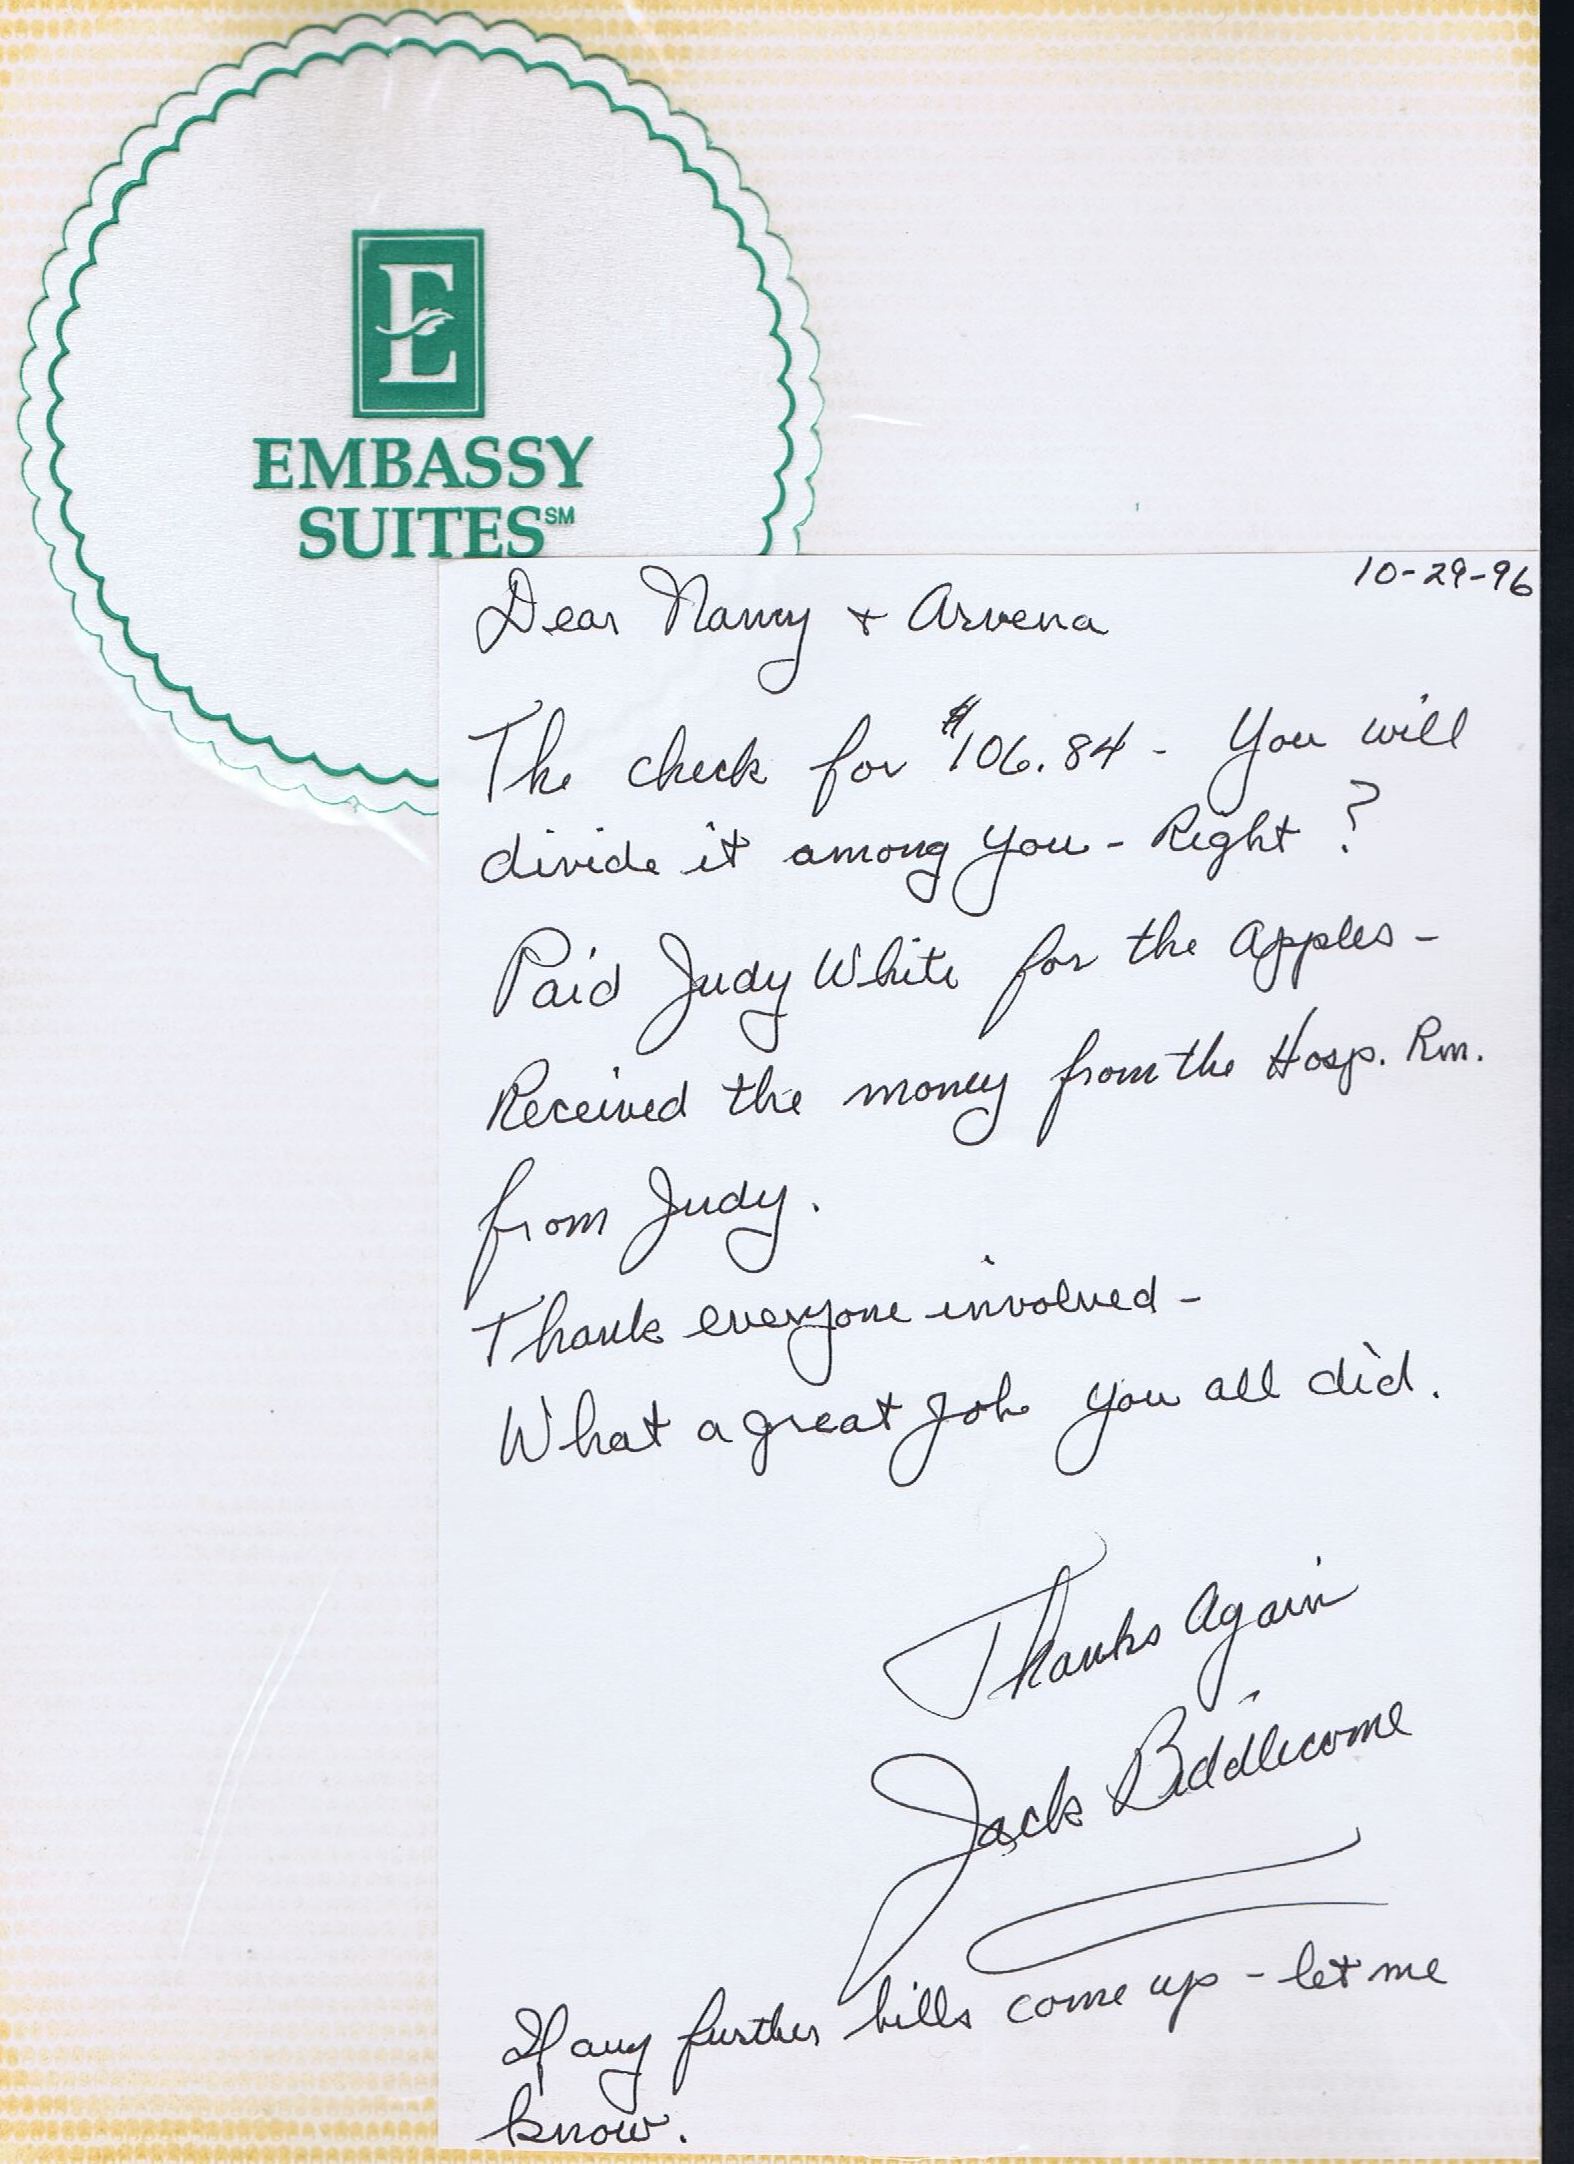 E
EMBASSY
SUITES℠
10-29-96
Dear Nancy + Arvena
The check for $106.84 - You will
divide it among you - Right ?
Paid Judy White for the apples -
Received the money from the Hosp. Rm.
from Judy.
Thank everyone involved -
What a great job you all did.
Thanks Again
Jack Biddlecome
If any further bills come up - let me
know.